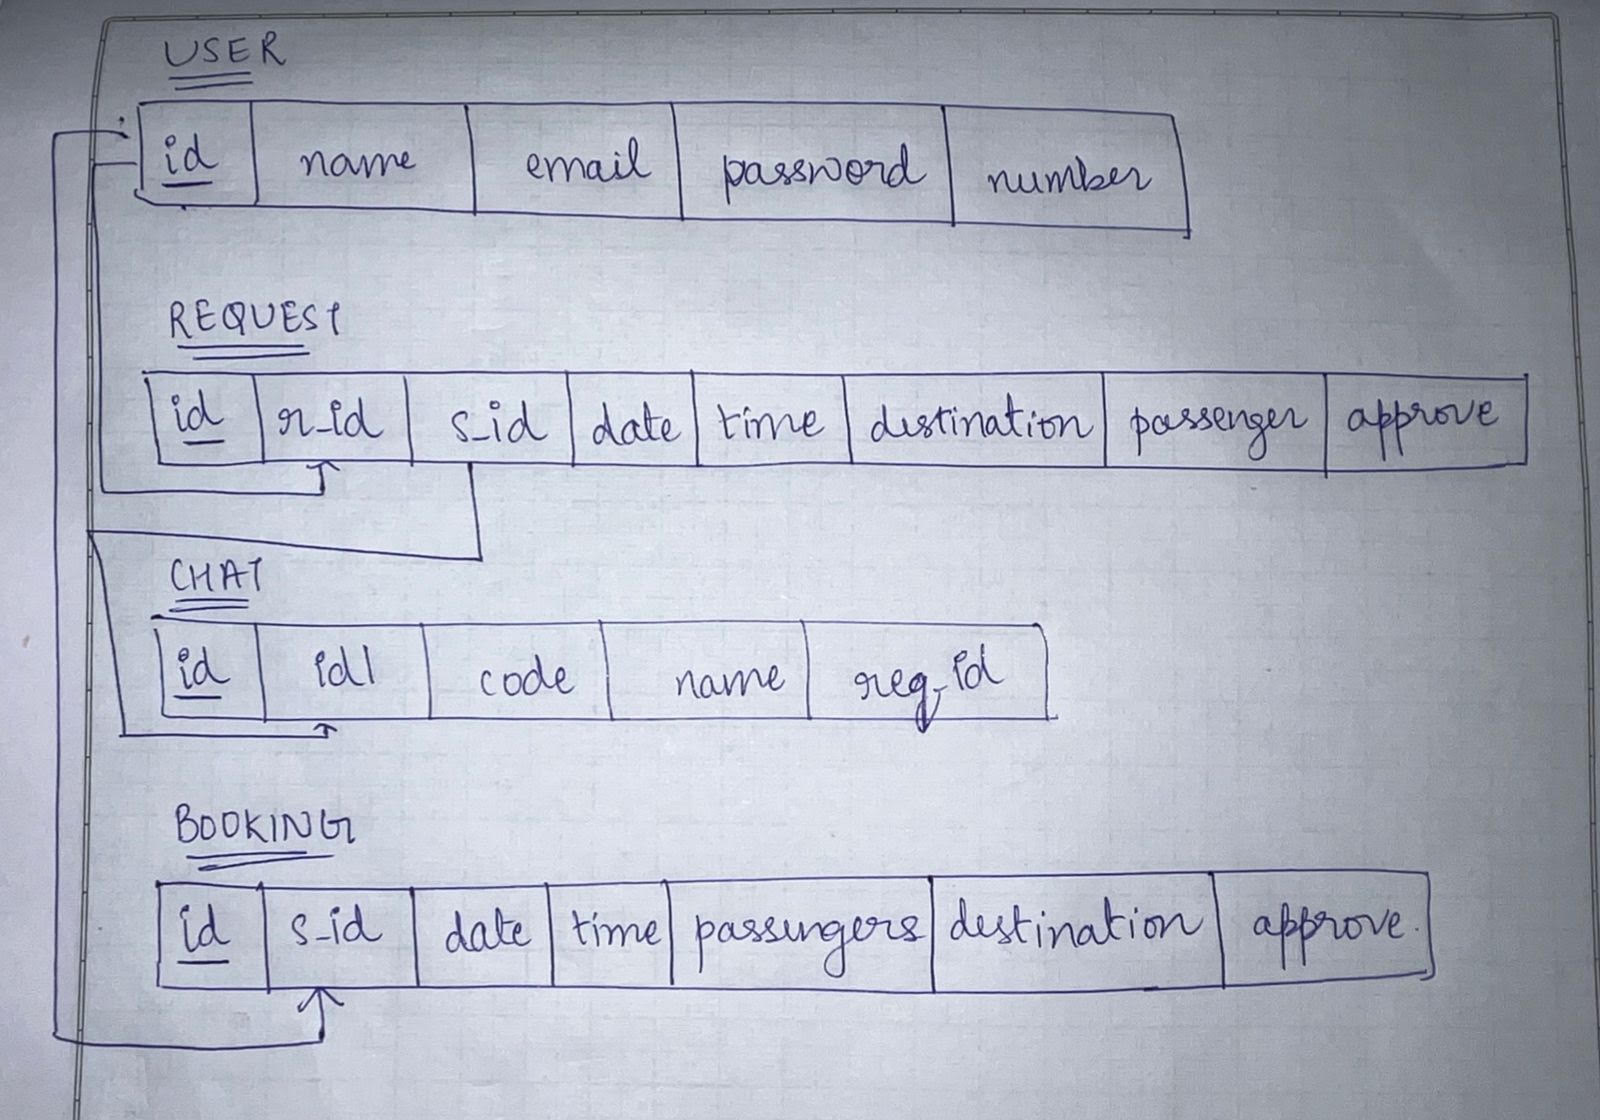 USER
id name email password number
REQUEST
id r_id s_id date time destination passenger approve
CHAT
id id1 code name req_id
BOOKING
id s_id date time passengers destination approve.